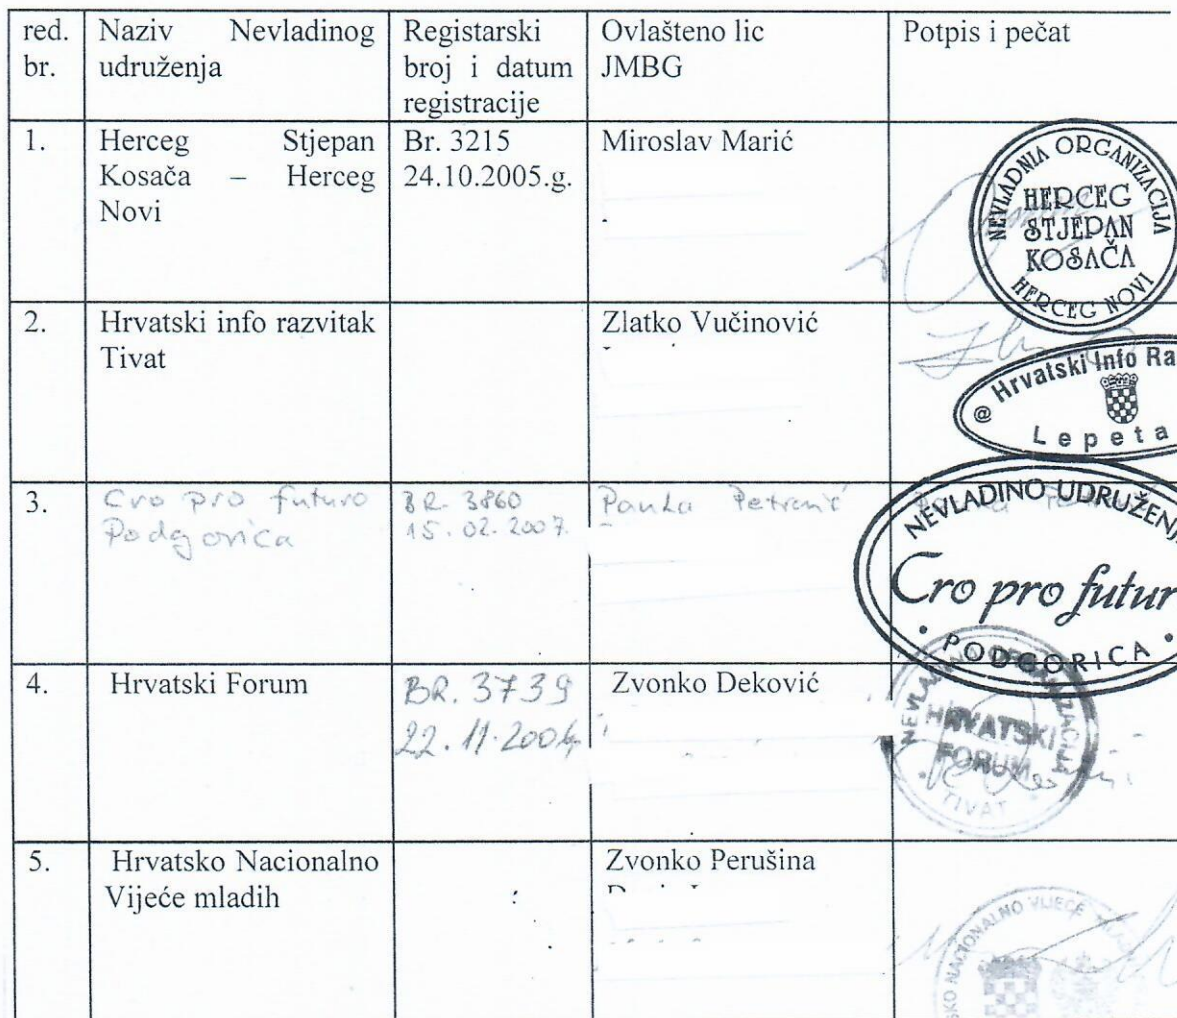 red. br.
Naziv Nevladinog udruženja
Registarski broj i datum registracije
Ovlašteno lic JMBG
Potpis i pečat
1.
Herceg Stjepan
Kosača – Herceg
Novi
Br. 3215
24.10.2005.g.
Miroslav Marić
NEVLADNIA ORGANIZACIJA
HERCEG
STJEPAN
KOSAČA
HERCEG NOVI
2.
Hrvatski info razvitak
Tivat
Zlatko Vučinović
@ Hrvatski Info Ra
Lepeta
3.
Cro pro futuro
Podgorica
BR. 3860
15.02.2007.
Petranić
NEVLADINO UDRUŽENJ
Cro pro futur
PODGORICA
4.
Hrvatski Forum
BR. 3739
Zvonko Deković
HRVATSKI
FORUM
TIVAT
5.
Hrvatsko Nacionalno
Vijeće mladih
Zvonko Perušina
SKO NACIONALNO VIJEĆE